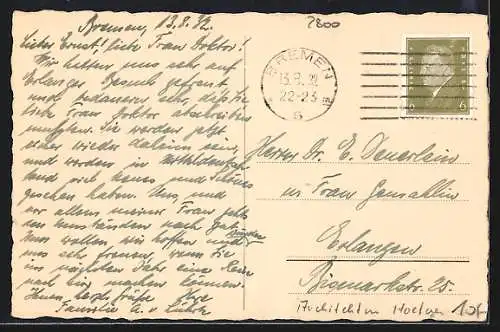 2800
Bremen, 13.8.32
Lieber Ernst! Liebe Frau Doktor!
Wir hatten uns sehr auf
Erlanger Besuch gefreut
und bedauern sehr, daß Sie,
liebe Frau Doktor absagen
mußten. Sie werden jetzt
wieder daheim sein,
und werden in Mitteldeutsch
land viel Neues und Schönes
gesehen haben. Uns, und
vor allem meiner Frau geht
den Umständen nach gut.
Nun wollen wir hoffen und
uns sehr freuen, wenn Sie
im nächsten Jahr eine Reise
nach hier machen können.
Ihnen herzl. Grüße Ihre
Familie A. v.
BREMEN
13.8.32
22-23
5
6 6
Herrn Dr. E. Deuerlein
u. Frau Gemahlin
Erlangen
Bismarckstr. 25.
Architekten Hoetger 10.-